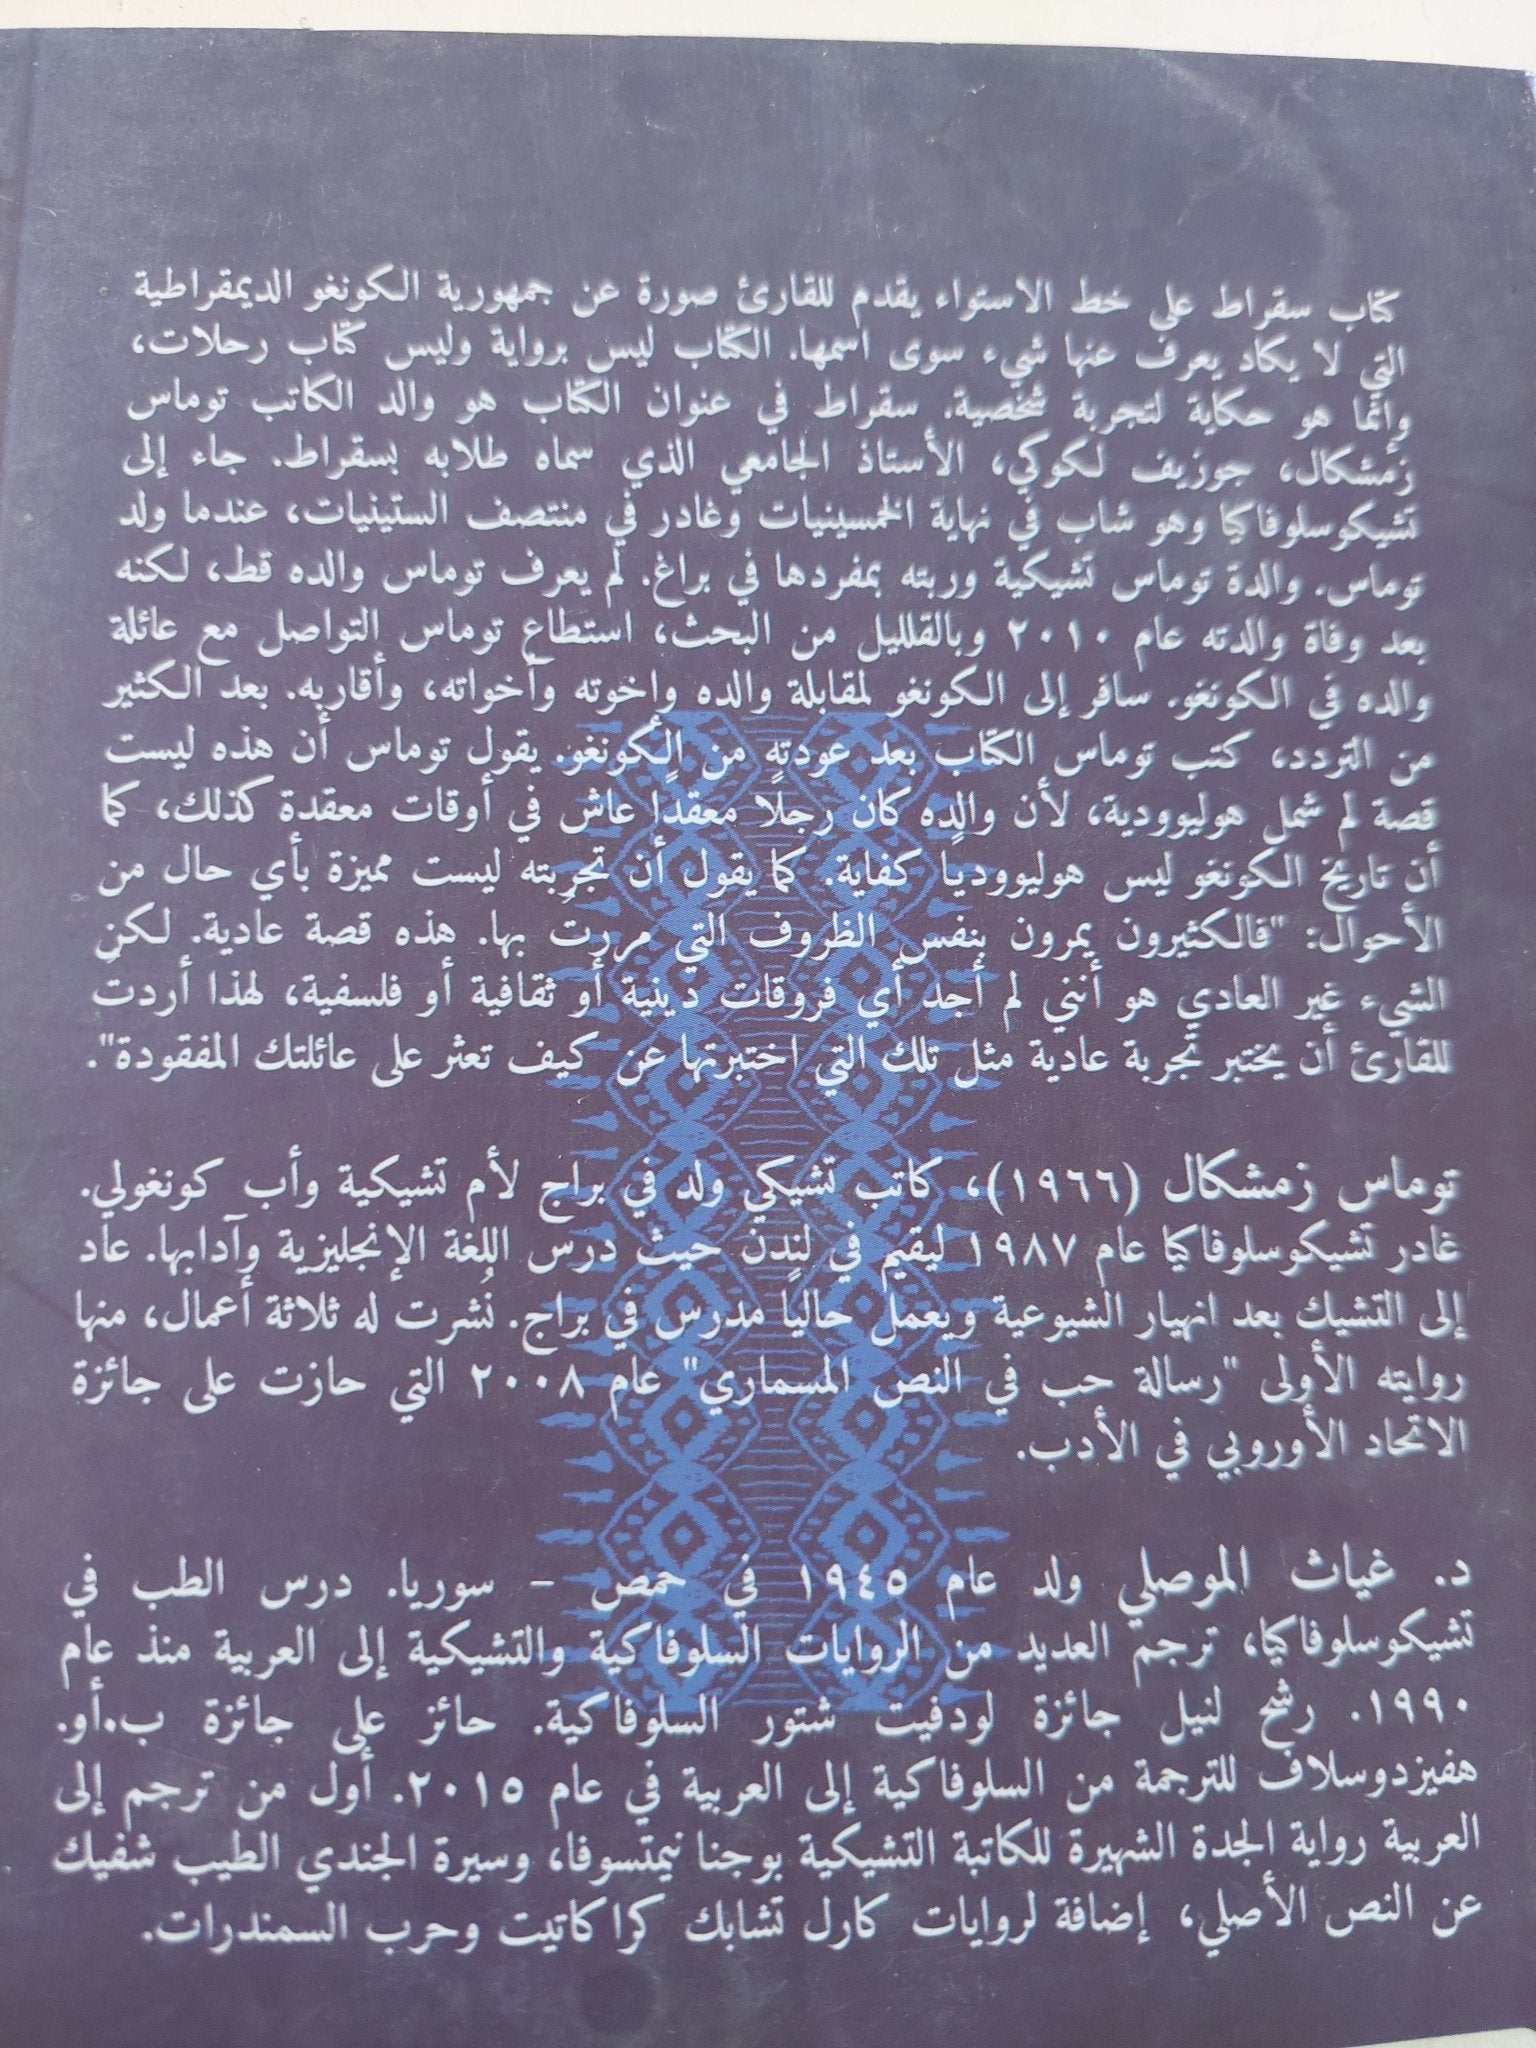 كتاب سقراط على خط الاستواء يقدم للقارئ صورة عن جمهورية الكونغو الديمقراطية
التي لا يكاد يعرف عنها شيء سوى اسمها. الكتاب ليس برواية وليس كتاب رحلات،
وإنما هو حكاية لتجربة شخصية. سقراط في عنوان الكتاب هو والد الكاتب توماس
زمشكال، جوزيف لكوكي، الأستاذ الجامعي الذي سماه طلابه بسقراط. جاء إلى
تشيكوسلوفاكيا وهو شاب في نهاية الخمسينيات وغادر في منتصف الستينيات، عندما ولد
توماس. والدة توماس تشيكية وربته بمفردها في براغ. لم يعرف توماس والده قط، لكنه
بعد وفاة والدته عام ٢٠١٠ وبالقلليل من البحث، استطاع توماس التواصل مع عائلة
والده في الكونغو. سافر إلى الكونغو لمقابلة والده وإخوته وأخواته، وأقاربه. بعد الكثير
من التردد، كتب توماس الكتاب بعد عودته من الكونغو. يقول توماس أن هذه ليست
قصة لم شمل هوليوودية، لأن والده كان رجلًا معقدًا عاش في أوقات معقدة كذلك، كما
أن تاريخ الكونغو ليس هوليووديًا كفاية. كما يقول أن تجربته ليست مميزة بأي حال من
الأحوال: "فالكثيرون يمرون بنفس الظروف التي مررت بها. هذه قصة عادية. لكن
الشيء غير العادي هو أنني لم أجد أي فروقات دينية أو ثقافية أو فلسفية، لهذا أردت
للقارئ أن يختبر تجربة عادية مثل تلك التي اختبرتها عن كيف تعثر على عائلتك المفقودة".
توماس زمشكال (١٩٦٦)، كاتب تشيكي ولد في براج لأم تشيكية وأب كونغولي.
غادر تشيكوسلوفاكيا عام ١٩٨٧ ليقيم في لندن حيث درس اللغة الإنجليزية وآدابها. عاد
إلى التشيك بعد انهيار الشيوعية ويعمل حاليًا مدرس في براج. نُشرت له ثلاثة أعمال، منها
روايته الأولى "رسالة حب في النص المسماري" عام ٢٠٠٨ التي حازت على جائزة
الاتحاد الأوروبي في الأدب.
د. غياث الموصلي ولد عام ١٩٤٥ في حمص - سوريا. درس الطب في
تشيكوسلوفاكيا، ترجم العديد من الروايات السلوفاكية والتشيكية إلى العربية منذ عام
١٩٩٠. رشح لنيل جائزة لودفيت شتور السلوفاكية. حائز على جائزة ب.أو.
هفيزدوسلاف للترجمة من السلوفاكية إلى العربية في عام ٢٠١٥. أول من ترجم إلى
العربية رواية الجدة الشهيرة للكاتبة التشيكية بوجنا نيمتسوفا، وسيرة الجندي الطيب شفيك
عن النص الأصلي، إضافة لروايات كارل تشابك كراكاتيت وحرب السمندرات.